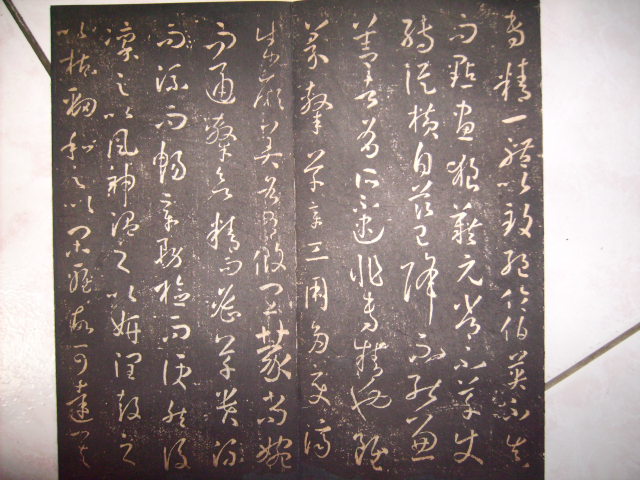 專精一體以致絕倫伯英不真
而點畫狼藉元常不草使
轉縱橫自茲已降不能兼
善者有所不逮非專精也雖
篆隸草章工用多變濟
成厥美各有攸宜篆尚婉
而通隸欲精而密草貴流
而暢章務檢而便然後
凜之以風神溫之以妍潤鼓之
以枯勁和之以閑雅故可達其